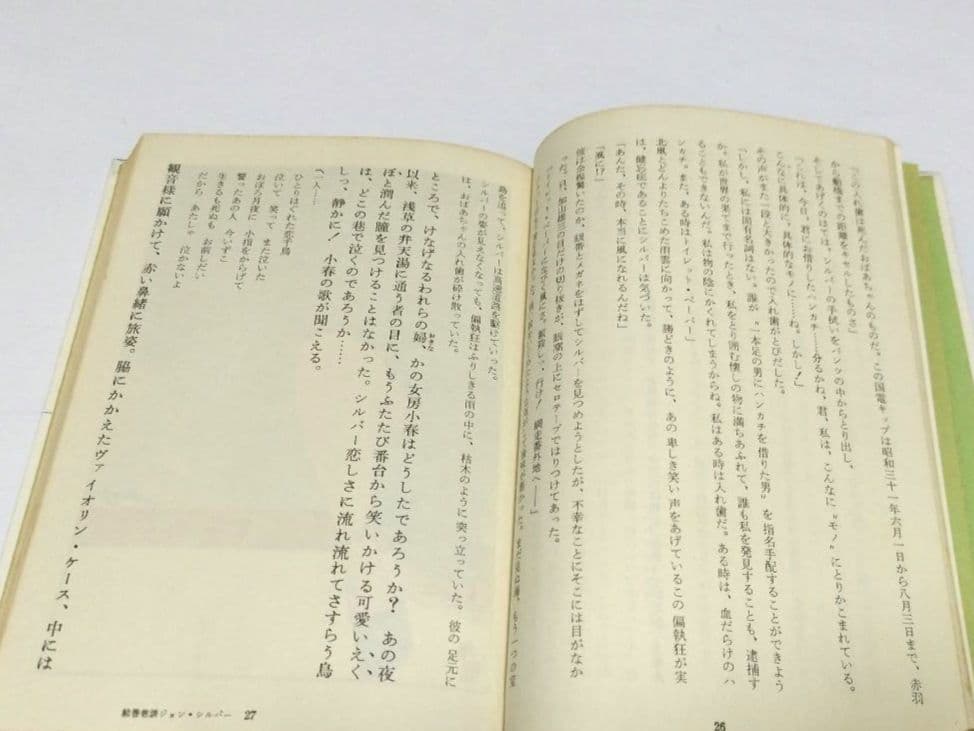 「この入れ歯は死んだおばあちゃんのものだ。この国電キップは昭和三十一年六月一日から八月三日まで、赤羽
から勤務先までの距離をキセルしたものさ」
そしてあげくのはては、シルバーの手拭いをパンツの中からとり出し、
「これは、今日、君にお借りしたハンカチ……分るかね、君、私は、こんなに〝モノ〟にとりかこまれている。
こんなに具体的に、具体的なモノに……ね。しかし！」
その声がまた一段と大きかったので入れ歯がとびだした。
「しかし、私には固有名詞はない。誰が〝一本足の男にハンカチを借りた男〟を指名手配することができよう
か。私が世界の果てまで行ったとき、私をとり囲む懐しの物に満ちあふれて、誰も私を発見することも、逮捕す
ることもできないんだ。私は物の陰にかくれてしまうからね。私はある時は入れ歯だ。ある時は、血だらけのハ
ンカチ。また、ある時はトイレット・ペーパー」
北風とどんよりたちこめた雨雲に向かって、勝どきのように、あの卑しき笑い声をあげているこの偏執狂が実
は、健忘症であることにシルバーは気づいた。
「あんた、その時、本当に風になれるんだね」
「風に!?」
彼は余程驚いたのか、銀番とメガネをはずしてシルバーを見つめようとしたが、不幸なことにそこには目がなか
った。目、加山雄三の目だけの切り抜きが、眼窩の上にセロテープではりつけてあった。
行け！ 網走番外地へ――」
島を追って、シルバーは高速道路を駆けていった。
シルバーの姿が見えなくなっても、偏執狂はふりしきる雨の中に、枯木のように突っ立っていた。彼の足元に
は、おばあちゃんの入れ歯が砕け散っていた。
ところで、けなげなるわれらの婦、かの女房小春はどうしたであろうか？ あの夜
以来、浅草の弁天湯に通う者の目に、もうふたたび番台から笑いかける可愛いえく
ぼと潤んだ瞳を見つけることはなかった。シルバー恋しさに流れ流れてさすらう鳥
は、どこの巷で泣くのであろうか……
しっ、静かに！ 小春の歌が聞こえる。
〽一人…
ひとりはぐれた恋千鳥
泣いて 笑って また泣いた
おぼろ月夜に 小指をからげて
誓ったあの人 今いずこ
生きるも死ぬも お前しだい
だから あたしゃ 泣かないよ
観音様に願かけて、赤い鼻緒に旅姿。脇にかかえたヴァイオリン・ケース、中には
絵巻巷談ジョン・シルバー 27
26